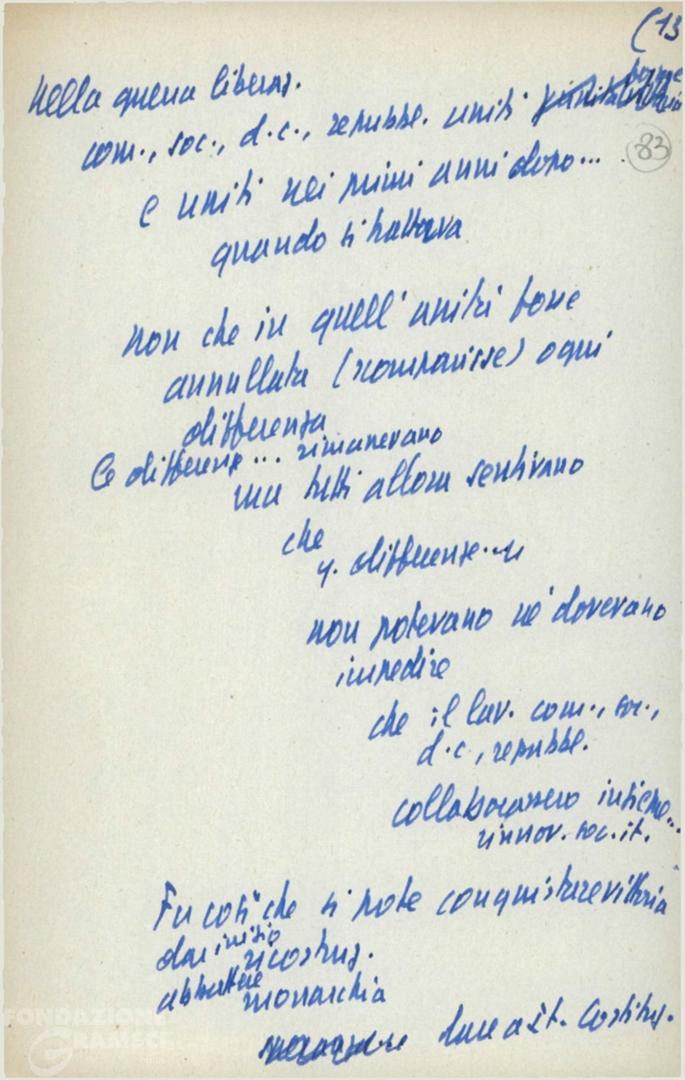 (13
Nella guerra liberaz.
com., soc., d.c., repubbl. uniti
83
e uniti nei primi anni dopo...
quando si trattava
non che in quell'unità fosse
annullata (scomparisse) ogni
differenza
Le differenze... rimanevano
ma tutti allora sentivano
che
q. differenze...
non potevano nè dovevano
impedire
che il lav. com., soc.,
d.c., repubbl.
collaborassero insieme...
rinnov. soc. it.
Fu così che si poté conquistare vittoria
dar inizio
ricostruz.
abbattere
monarchia
dare a It. Costituz.
FONDAZIONE
GRAMSCI